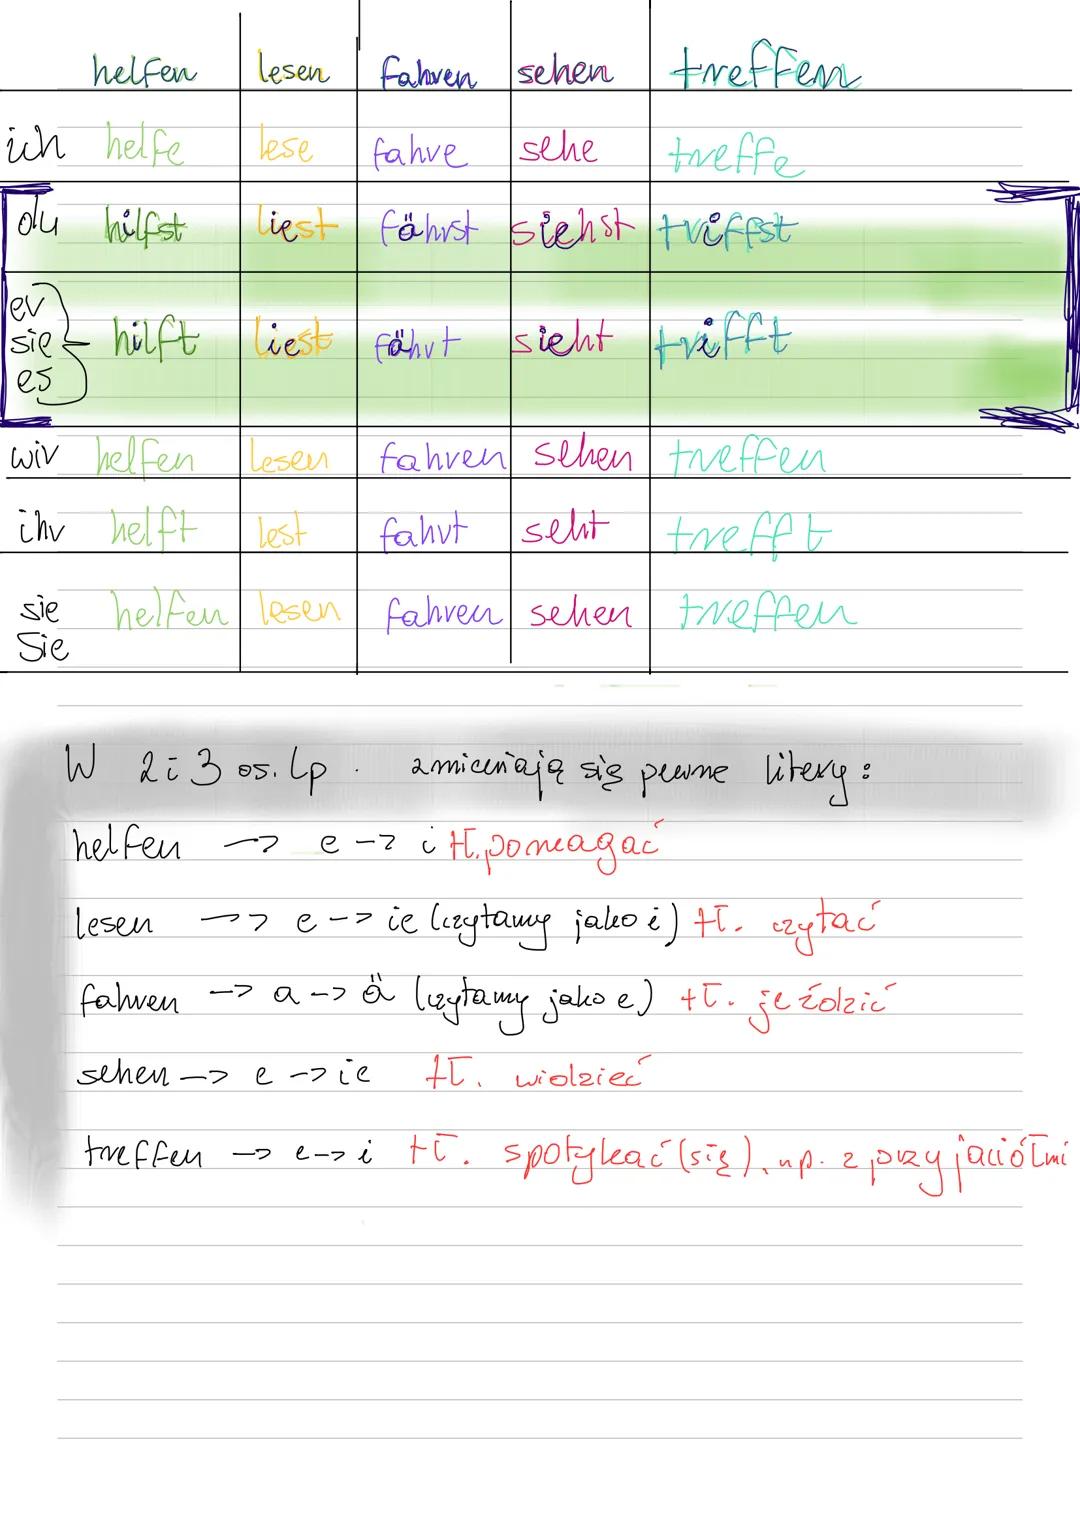 helfen lesen fahren sehen treffen
ich helfe lese fahre sehe treffe
du hilfst liest fährst siehst triffst
er
sie hilft liest fährt sieht trifft
es
wir helfen lesen fahren sehen treffen
ihr helft lest fahrt seht trefft
sie helfen lesen fahren sehen treffen
Sie
W 2 i 3 os. lp. zmieniają się pewne litery:
helfen -> e -> i tł. pomagać
lesen -> e -> ie (czytamy jako i) tł. czytać
fahren -> a -> ä (czytamy jako e) tł. jeździć
sehen -> e -> ie tł. widzieć
treffen -> e -> i tł. spotykać (się), np. z przyjaciółmi